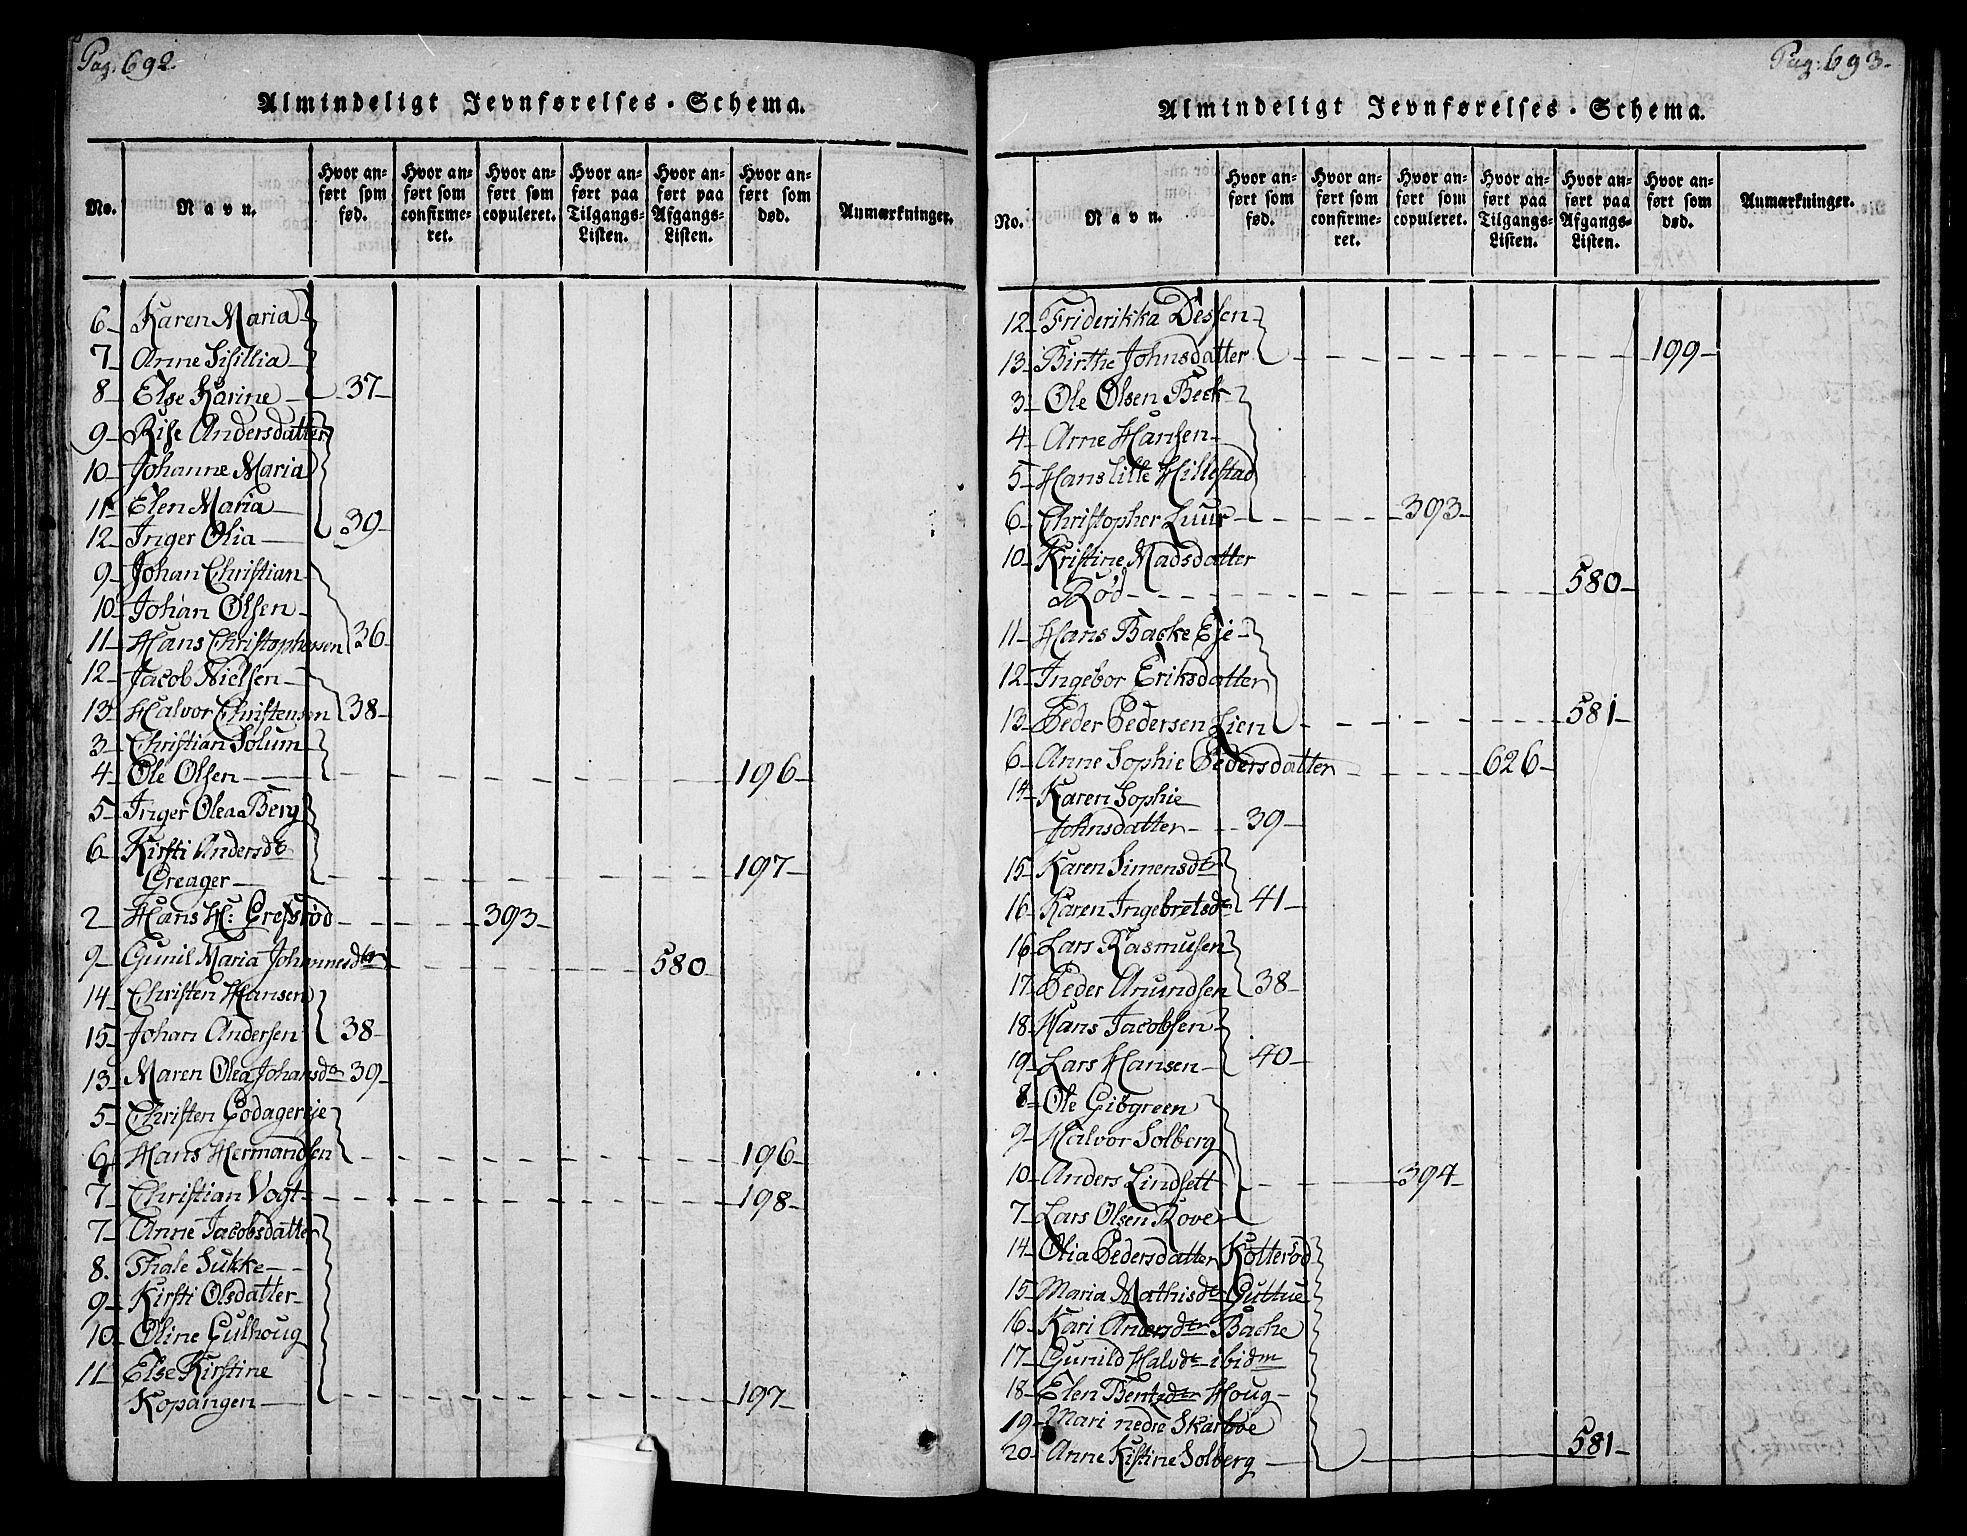 Pag: 692.
Almindeligt Jevnførelses-Schema.
No. Navn. Hvor anført som fød. Hvor anført som confirmeret. Hvor anført som copuleret. Hvor anført paa Tilgangs-Listen. Hvor anført paa Afgangs-Listen. Hvor anført som død. Anmærkninger.
6 Karen Maria
7 Anne Sisillia
8 Else Karine 37
9 Rise Andersdatter
10 Johanne Maria
11 Elen Maria
12 Inger Olia 39
9 Johan Christian
10 Johan Olsen
11 Hans Christophersen 36
12 Jacob Nielsen
13 Halvor Christensen 38
3 Christian Solum
4 Ole Olsen 196
5 Inger Olea Berg
6 Kirsti Andersdtr
Greager 197
2 Hans H: Gresrød 393
9 Gunil Maria Johannesdtr 580
14 Christen Hansen
15 Johan Andersen 38
13 Maren Olea Johansdr 39
5 Christen Godagereje
6 Hans Hermandsen 196
7 Christian Vogt 198
7 Anne Jacobsdatter
8. Thale Sukke
9 Kirsti Olsdatter
10 Oline Gulhoug
11 Else Kirstine
Kopangen 197
Pag: 693.
Almindeligt Jevnførelses-Schema.
No. Navn. Hvor anført som fød. Hvor anført som confirmeret. Hvor anført som copuleret. Hvor anført paa Tilgangs-Listen. Hvor anført paa Afgangs-Listen. Hvor anført som død. Anmærkninger.
12 Friderikka Dessen
13 Birthe Johnsdatter 199
3 Ole Olsen Beck
4 Arne Hansen
5 Hans lille Hillestad
6 Christopher Luur 393
10 Kristine Madsdatter
Rød 580
11 Hans Backe Eje
12 Ingebor Eriksdatter
13 Peder Pedersen Lien 581
6 Anne Sophie Pedersdatter 626
14 Karen Sophie
Johnsdatter 39
15 Karen Simensdtr
16 Karen Ingebretsdr 41
16 Lars Rasmusen
17 Peder Amundsen 38
18 Hans Jacobsen
19 Lars Hansen 40
8 Ole Gibgreen
9 Halvor Solberg
10 Anders Lindsett 394
7 Lars Olsen Rove
14 Olia Pedersdatter Kolterød
15 Maria Mathisdr Guttue
16 Kari Andersdtr Bache
17 Gunild Halvdr ibidm
18 Elen Bentsdtr Houg
19 Mari nedre Skarbve
20 Anne Kistine Solberg 581